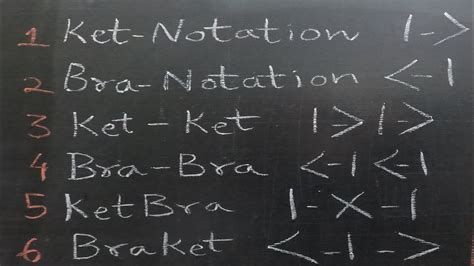 1 Ket-Notation |->
2 Bra-Notation <-|
3 Ket-Ket |>|>
4 Bra-Bra <-| <-|
5 KetBra |-×-|
6 Braket <-|->